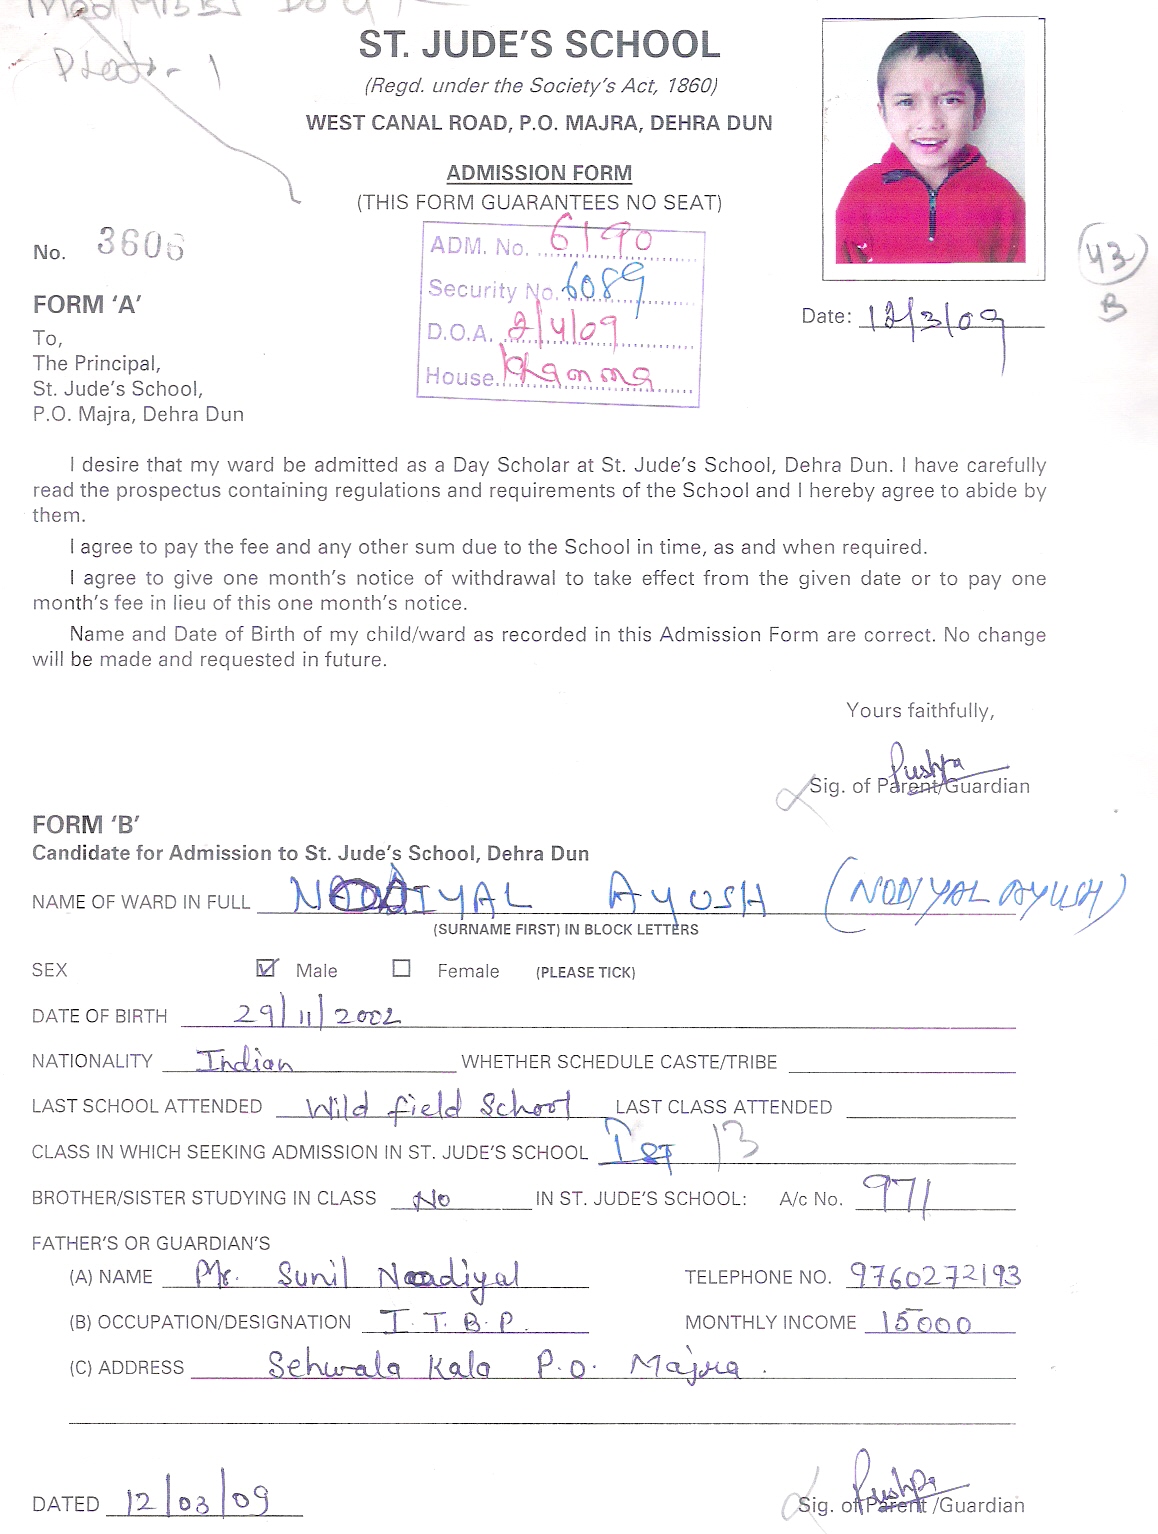 ST. JUDE'S SCHOOL
(Regd. under the Society's Act, 1860)
WEST CANAL ROAD, P.O. MAJRA, DEHRA DUN
ADMISSION FORM
(THIS FORM GUARANTEES NO SEAT)
No. 3606
ADM. No. 6190
Security No. 6089
D.O.A. 2/4/09
House
43
B
Date: 12/3/09
FORM 'A'
To,
The Principal,
St. Jude's School,
P.O. Majra, Dehra Dun
I desire that my ward be admitted as a Day Scholar at St. Jude's School, Dehra Dun. I have carefully
read the prospectus containing regulations and requirements of the School and I hereby agree to abide by
them.
I agree to pay the fee and any other sum due to the School in time, as and when required.
I agree to give one month's notice of withdrawal to take effect from the given date or to pay one
month's fee in lieu of this one month's notice.
Name and Date of Birth of my child/ward as recorded in this Admission Form are correct. No change
will be made and requested in future.
Yours faithfully,
Pushpa
Sig. of Parent/Guardian
FORM 'B'
Candidate for Admission to St. Jude's School, Dehra Dun
NAME OF WARD IN FULL NODIYAL AYUSH (NODIYAL AYUSH)
(SURNAME FIRST) IN BLOCK LETTERS
SEX Male Female (PLEASE TICK)
DATE OF BIRTH 29/11/2002
NATIONALITY Indian WHETHER SCHEDULE CASTE/TRIBE
LAST SCHOOL ATTENDED Wild field School LAST CLASS ATTENDED
CLASS IN WHICH SEEKING ADMISSION IN ST. JUDE'S SCHOOL
BROTHER/SISTER STUDYING IN CLASS No IN ST. JUDE'S SCHOOL: A/c No. 971
FATHER'S OR GUARDIAN'S
(A) NAME Mr. Sunil Noadiyal TELEPHONE NO. 9760272193
(B) OCCUPATION/DESIGNATION I.T.B.P. MONTHLY INCOME 15000
(C) ADDRESS Sehwala Kala P.O. Majra.
DATED 12/03/09
Pushpa
Sig. of Parent /Guardian